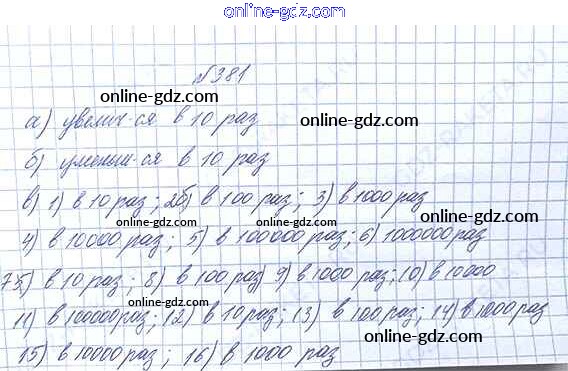 online-gdz.com
№381
online-gdz.com
а) увелич-ся в 10 раз
online-gdz.com
б) уменьш-ся в 10 раз
online-gdz.com
в) 1) в 10 раз; 2б) в 100 раз; 3) в 1000 раз
online-gdz.com online-gdz.com online-gdz.com
4) в 10000 раз; 5) в 100000 раз; 6) 1000000 раз
7б) в 10 раз; 8) в 100 раз 9) в 1000 раз; 10) в 10000
online-gdz.com online-gdz.com online-gdz.com
11) в 100000 раз; 12) в 10 раз; 13) в 100 раз; 14) в 1000 раз
15) в 10000 раз; 16) в 1000 раз